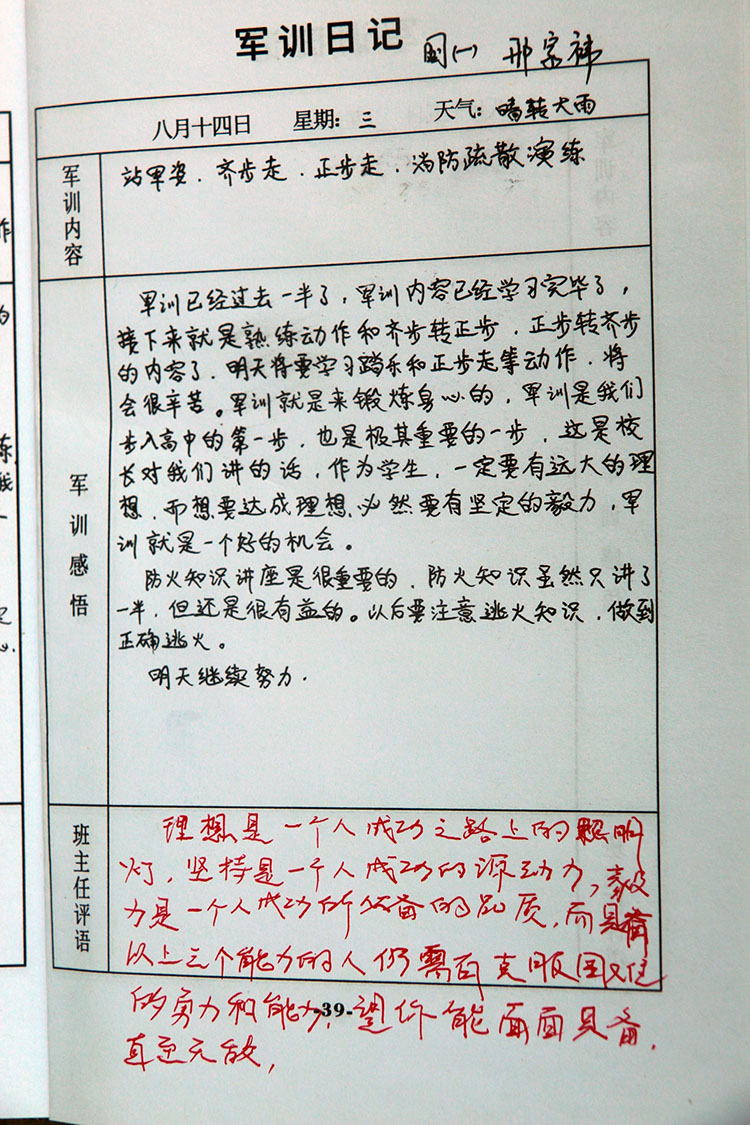 军训日记 国(一) 邢宗祎
八月十四日 星期：三 天气：晴转大雨
军训内容
站军姿．齐步走．正步走．消防疏散演练
军训感悟
军训已经过去一半了，军训内容已经学习完毕了，
接下来就是熟练动作和齐步转正步．正步转齐步
的内容了．明天将要学习踏乐和正步走等动作．将
会很辛苦。军训就是来锻炼身心的，军训是我们
步入高中的第一步，也是极其重要的一步，这是校
长对我们讲的话，作为学生，一定要有远大的理
想．而想要达成理想必然要有坚定的毅力，军
训就是一个好的机会。
防火知识讲座是很重要的．防火知识虽然只讲了
一半，但还是很有益的。以后要注意逃火知识，做到
正确逃火。
明天继续努力．
班主任评语
理想是一个人成功之路上的照明
灯，坚持是一个人成功的源动力，毅
力是一个人成功所必备的品质，而具备
以上三个能力的人仍需有克服困难
的勇力和能力，望你能面面具备，
直至无敌，
-39-